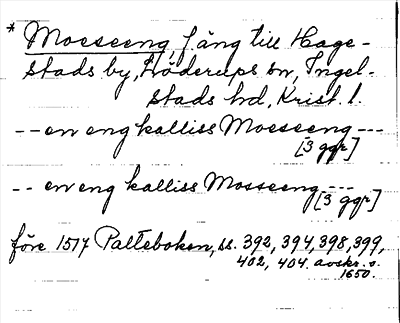 * Moeseeng, f. äng till Hage-
stads by, Höderups sn, Ingel-
stads hd, Krist. l.
-- en eng kalliss Moeseeng ---
[3 ggr]
-- en eng kalliss Mosseeng ---
[3 ggr]
före 1517 Palteboken, ss. 392, 394, 398, 399,
402, 404. avskr. o.
1650.